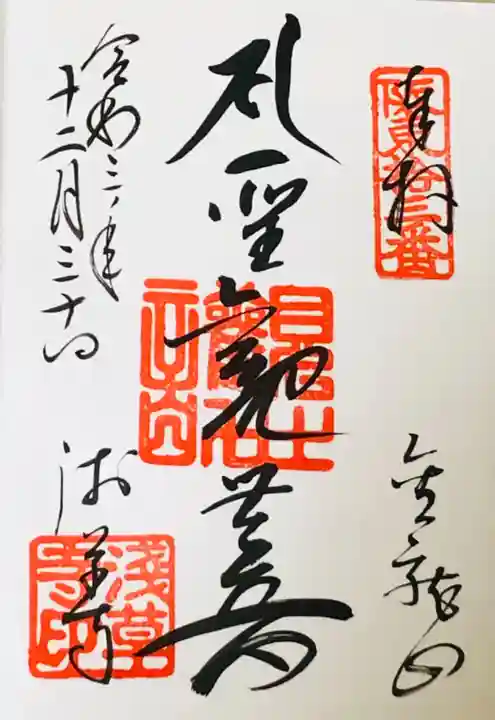 奉拝
阪東拾三番
金龍山
聖観世音
令和三年
十二月三十日
浅草寺
淺草寺印